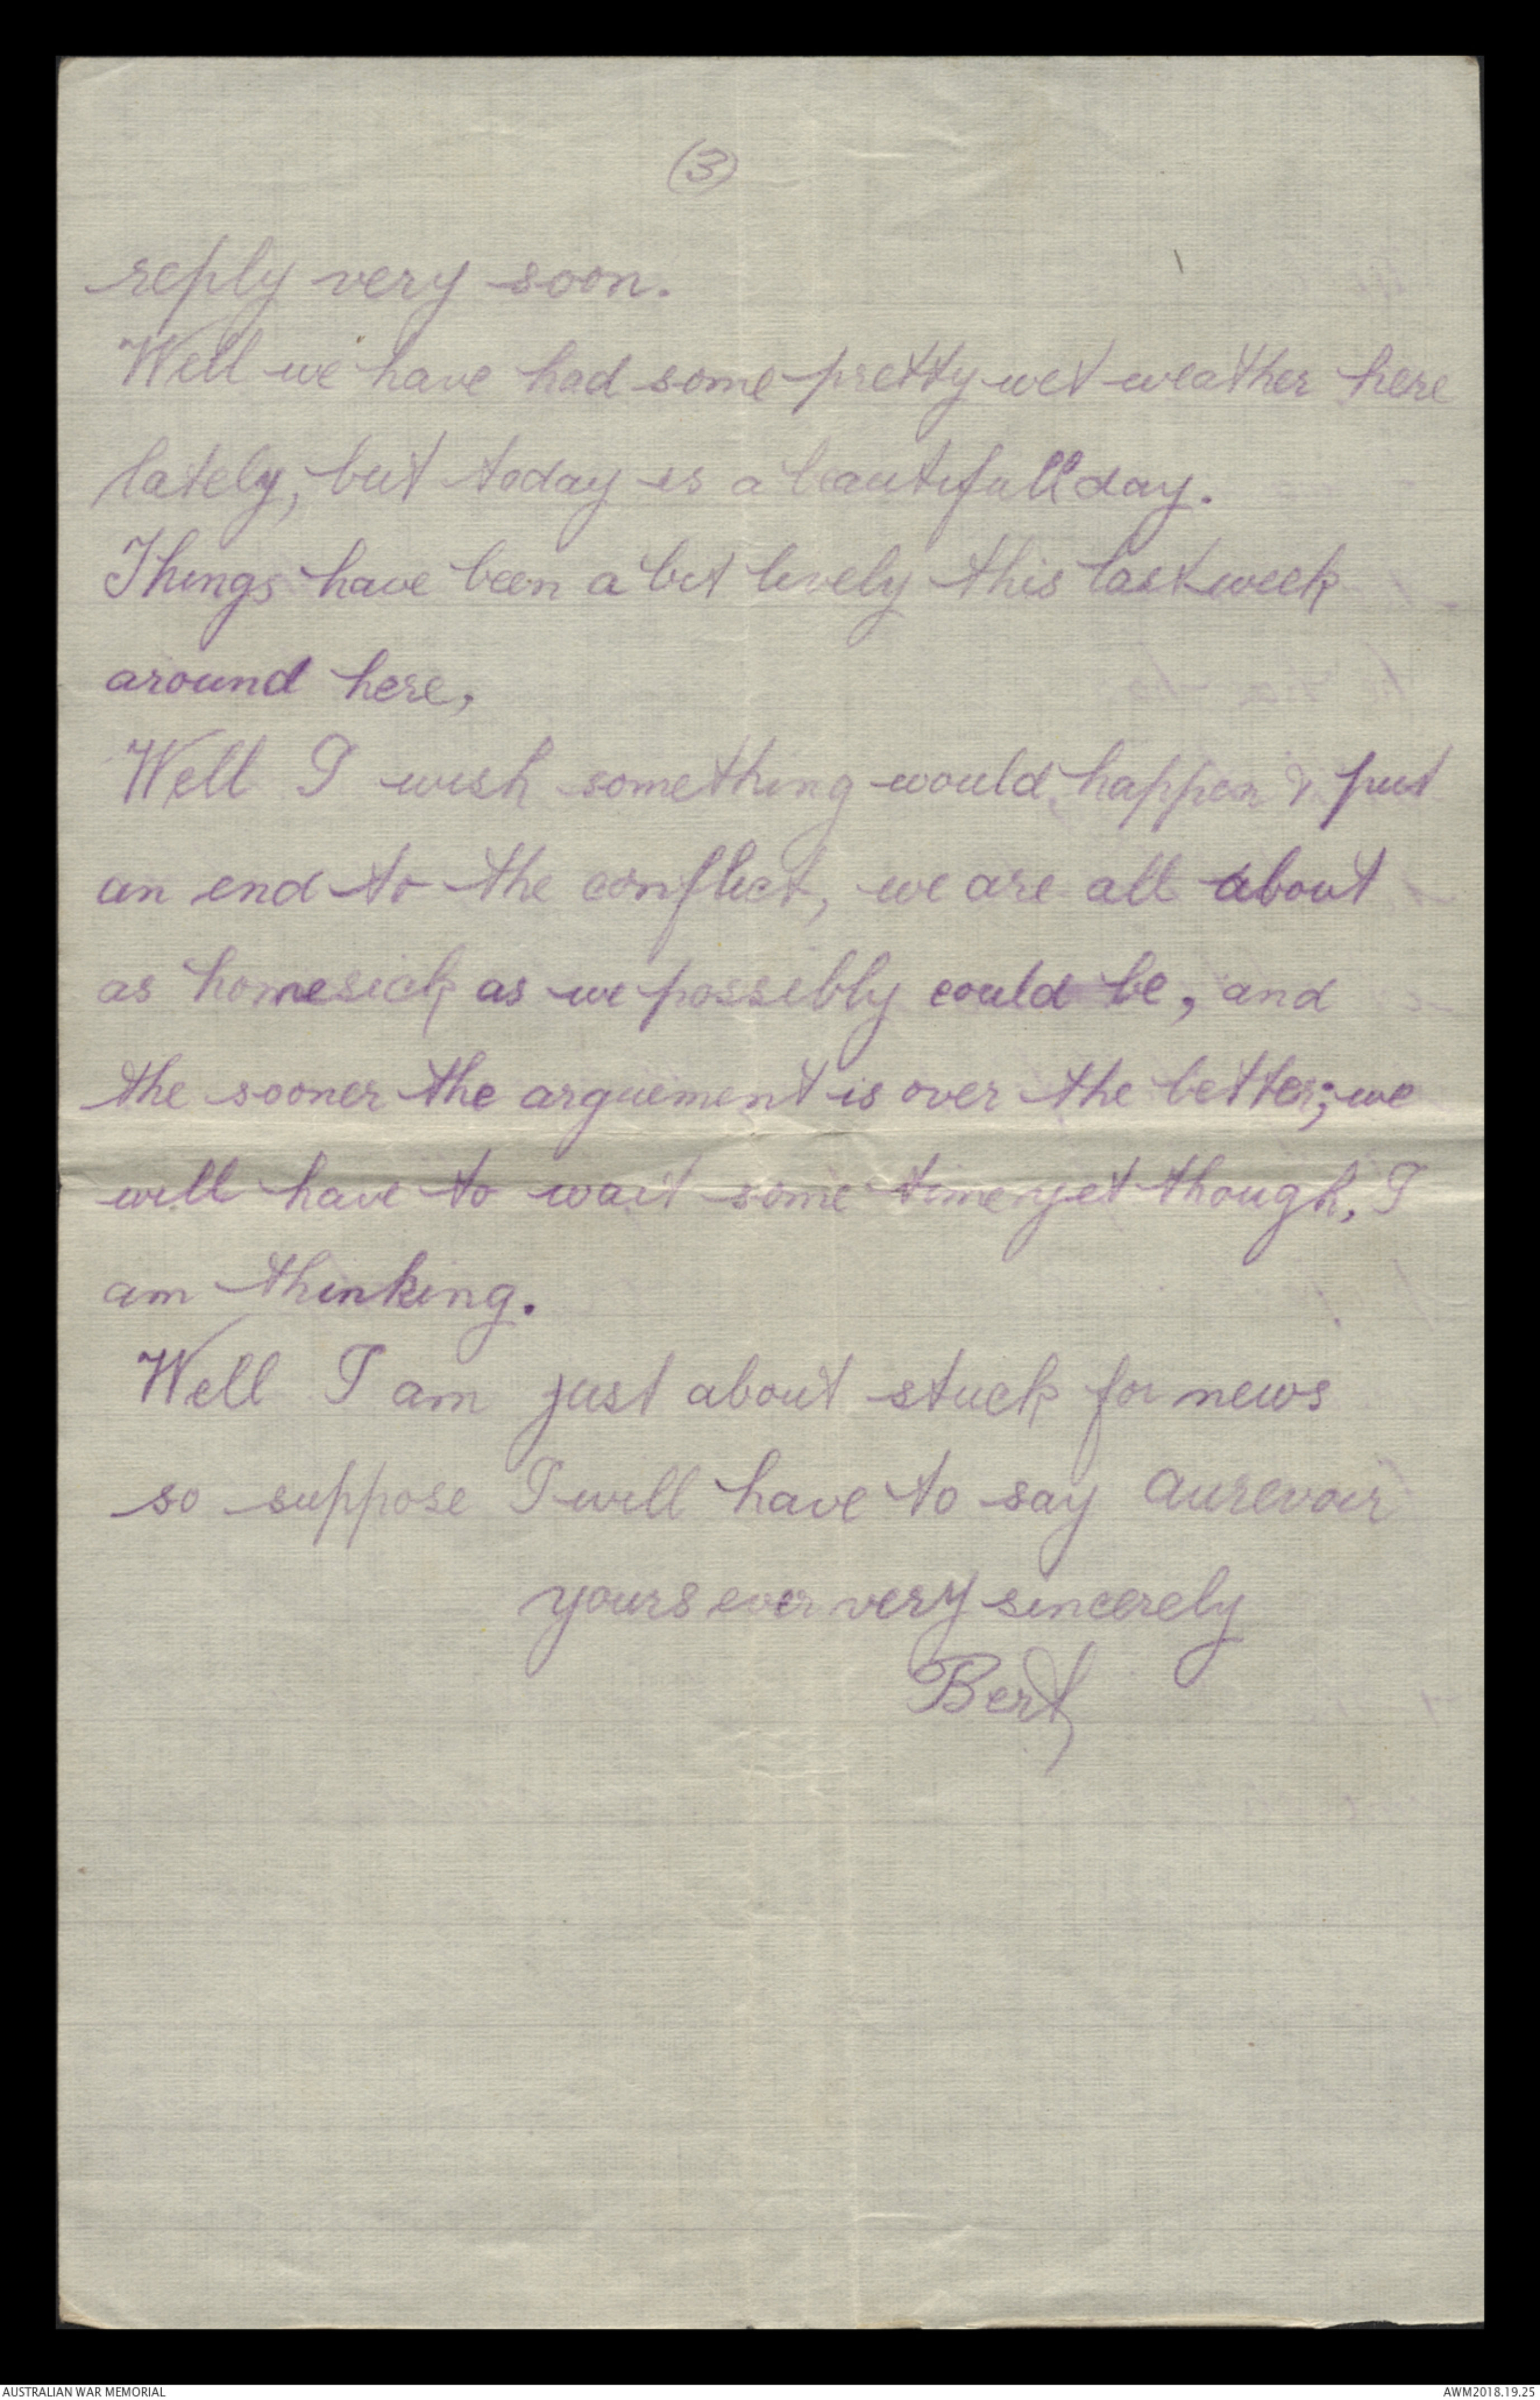 (3)
reply very soon.
Well we have had some pretty wet weather here
lately, but today is a beautifull day.
Things have been a bit lively this last week
around here,
Well I wish something would happen & put
an end to the conflict, we are all about
as homesick as we possibly could be, and
the sooner the arguement is over the better; we
will have to wait some time yet though, I
am thinking.
Well I am just about stuck for news
so suppose I will have to say aurevoir
yours ever very sincerely
Bert
AUSTRALIAN WAR MEMORIAL
AWM2018.19.25